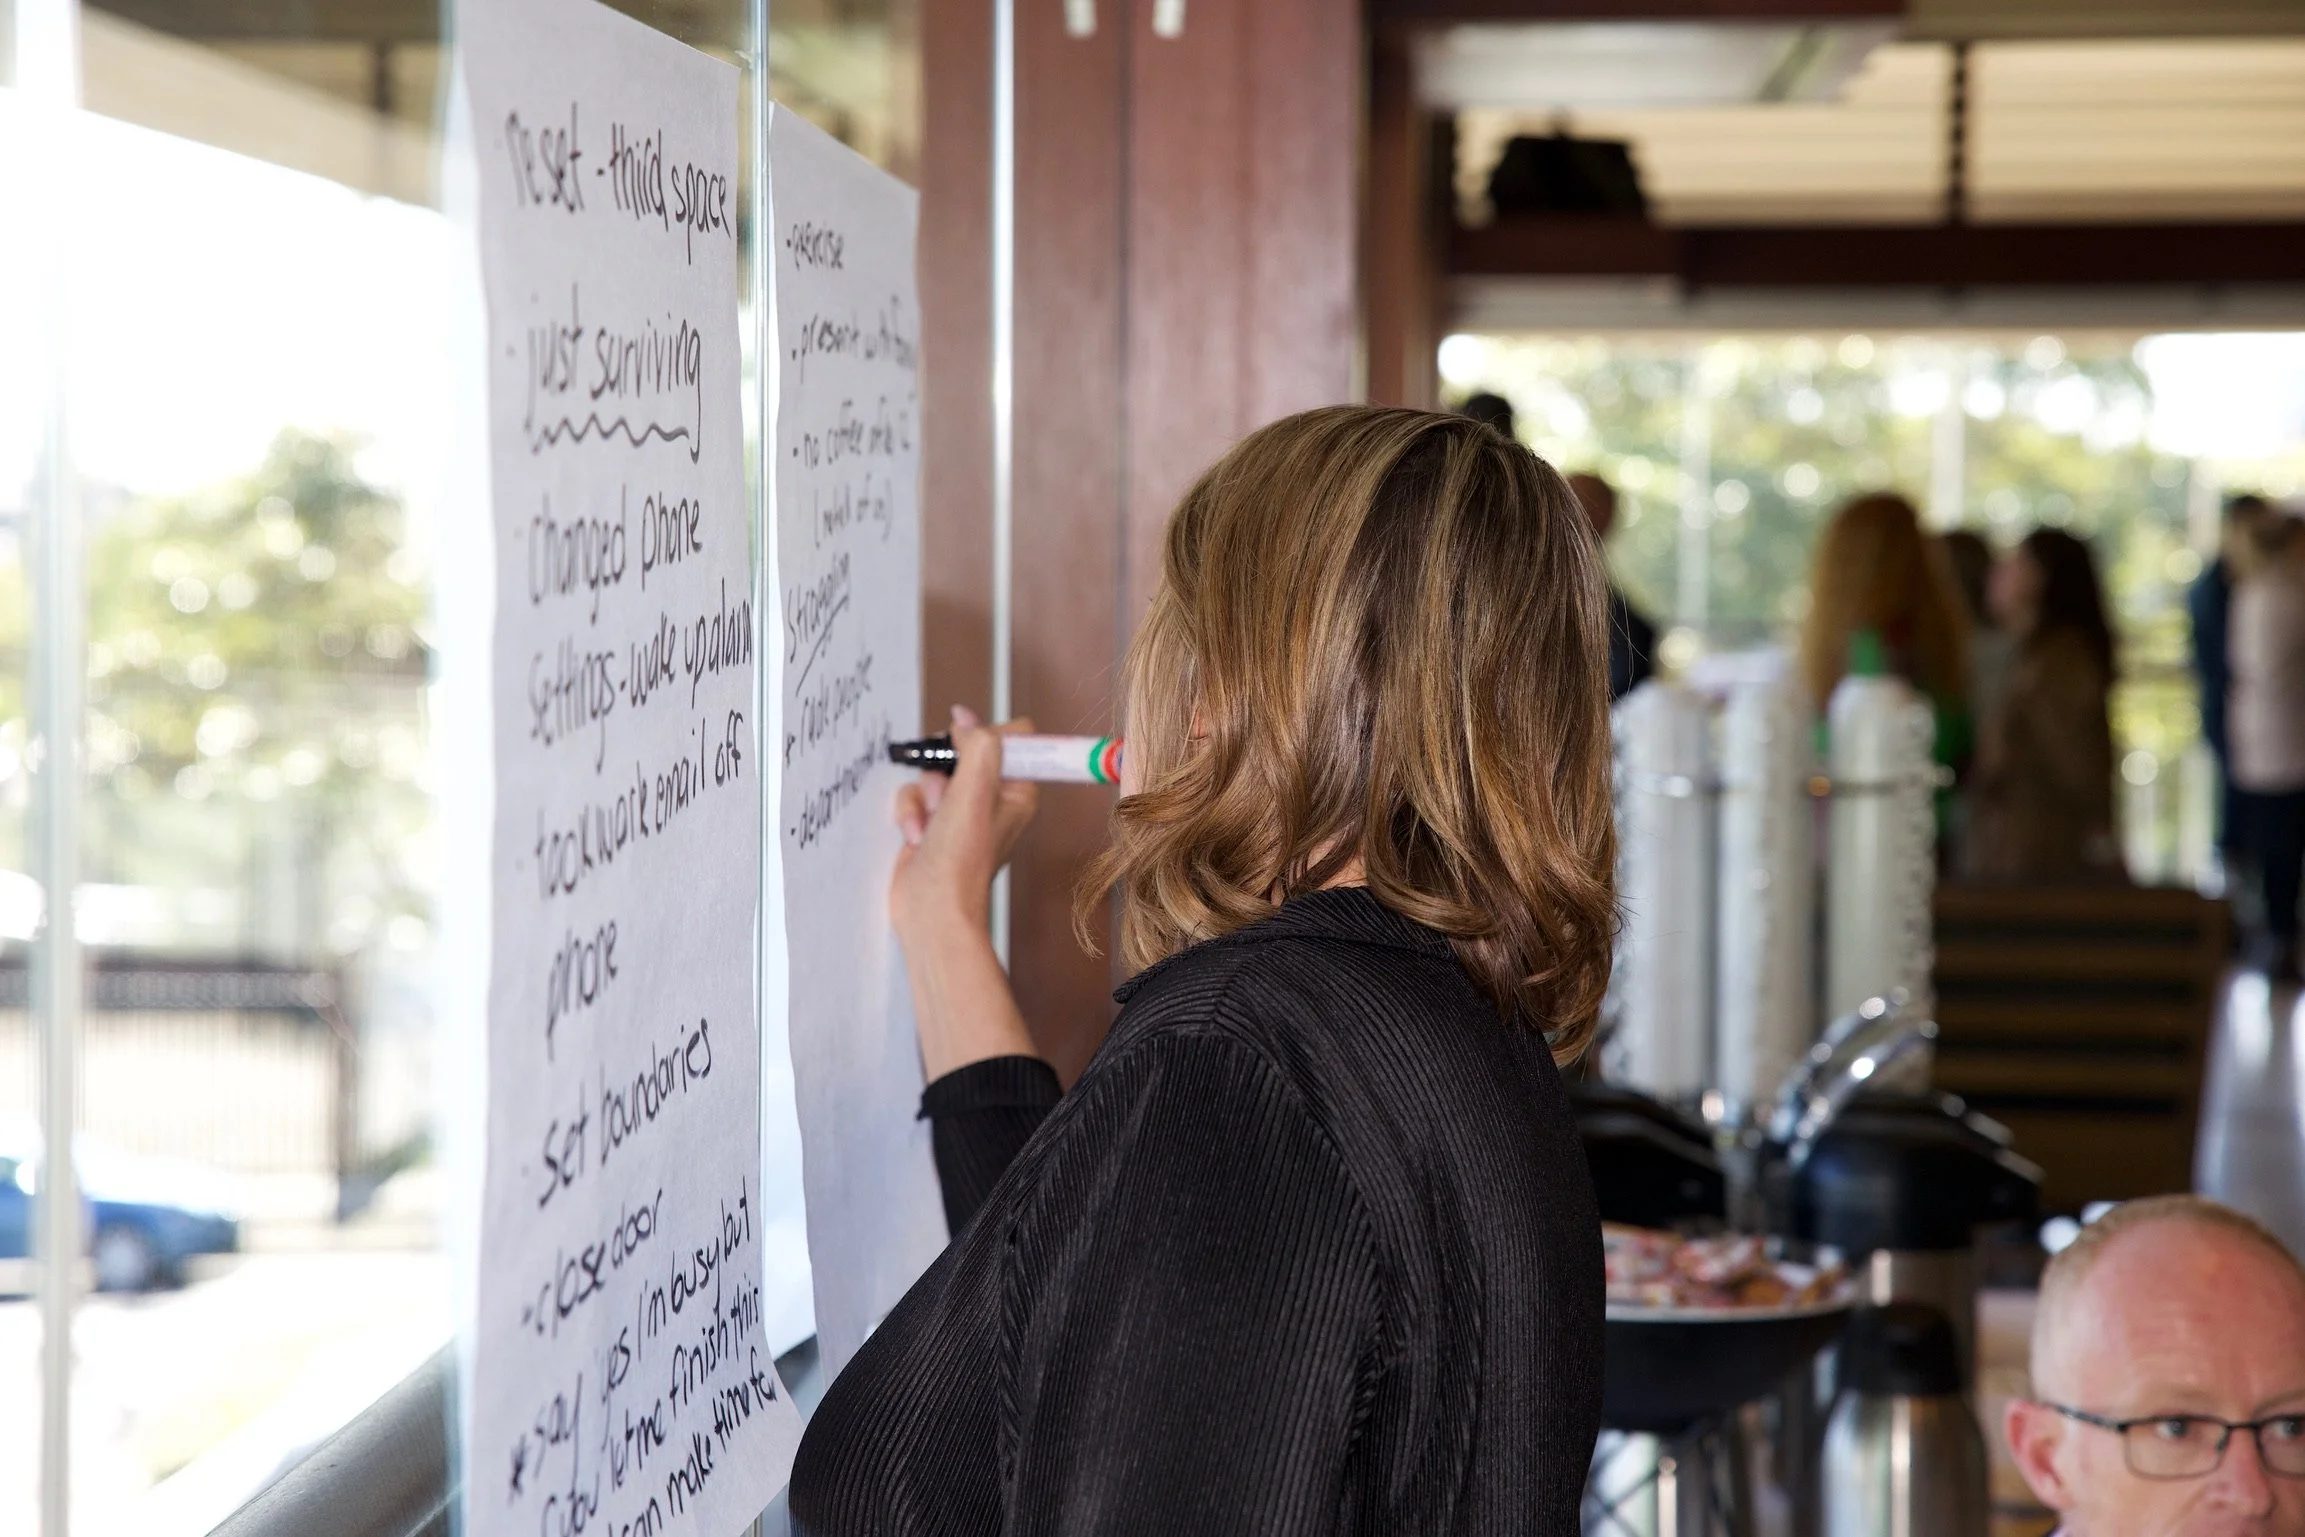 reset - third space
· just surviving
· changed phone
settings - wake up alarm
· took work email off
phone
· set boundaries
- close door
* say yes I'm busy but
let me finish this
can make time
- exercise
- present with
- no coffee
Struggling
* people
- departmental